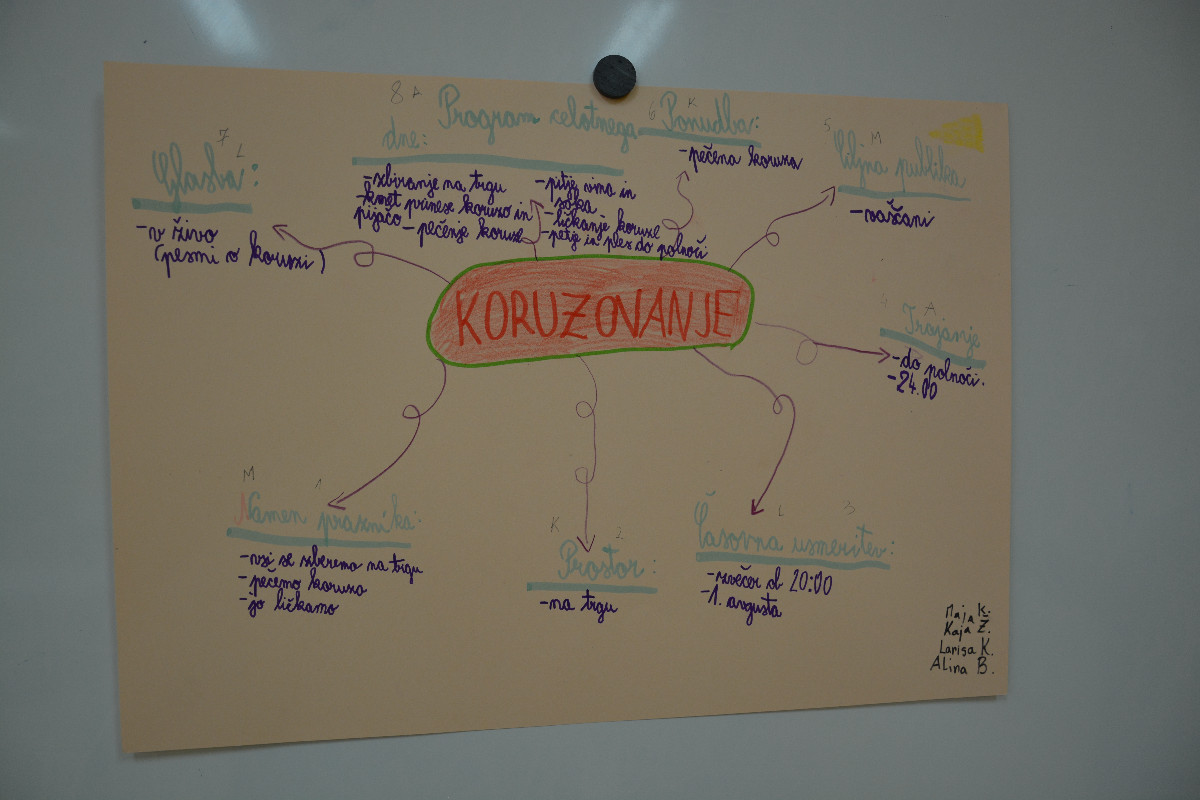 8 A
Program celotnega
dne:
-zbiranje na trgu
-kmet prinese koruzo in
pijačo
-pečenje koruze
-pitje vina in
soka
-ličkanje koruze
-petje in ples do polnoči
6 K
Ponudba:
-pečena koruza
5 M
Ciljna publika
-vaščani
7 L
Glasba:
-v živo
(pesmi o koruzi)
KORUZOVANJE
4 A
Trajanje
-do polnoči.
-24.00
M 1
Namen praznika:
-vsi se zberemo na trgu
-pečemo koruzo
-jo ličkamo
K 2
Prostor:
-na trgu
L 3
Časovna usmeritev:
-zvečer ob 20:00
-1. avgusta
Maja K.
Kaja Ž.
Larisa K.
Alina B.